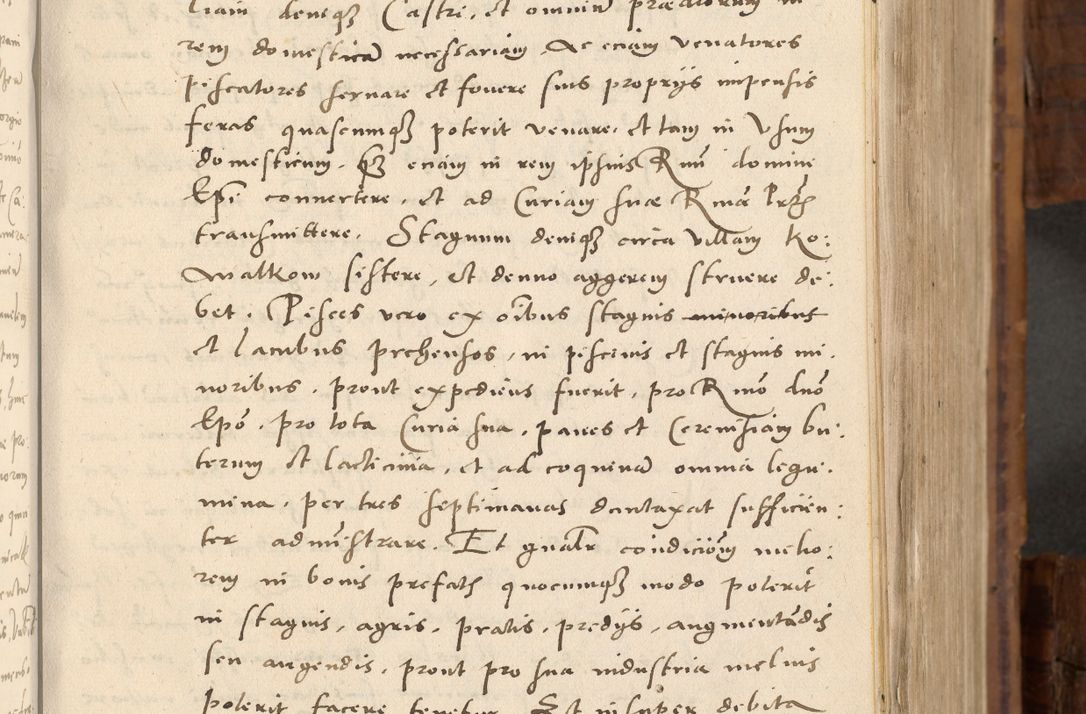 liam deniqȝ Castri, et omnium prædiorum in
rem domesticā necessariam Ac eciam venatores
piscatores seruare et fouere suis proprijs impensis
feras quascunqȝ poterit venare, et tam in Vsum
domesticum, qȝ eciam in rem ipsius Rmi domini
Epi conuertere, et ad Curiam suæ Rmæ
transmittere. Stagnum deniqȝ circa Villam Ko:
walkow sistere, et denuo aggerem struere de:
bet. Pisces vero ex oibus stagnis minoribus
et lacubus prehensos, in piscinis et stagnis mi.
noribus, prout expediens fuerit, pro Rmo dno
Epo, pro tota Curia sua, panes et Cereuisiam bu:
terum et lacticinia, et ad coquinā omnia legu.
mina, per tres septimanas duntaxat sufficien:
ter administrare. Et gnalr condiciōm melio:
rem in bonis prefatis quocunqȝ modo poterit
in stagnis, agris, pratis, predijs, augmentādis
seu augendis, prout pro sua industria melius
poterit facere tenebitur Et insuper debita